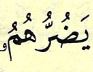 يَضُرُّهُمْ